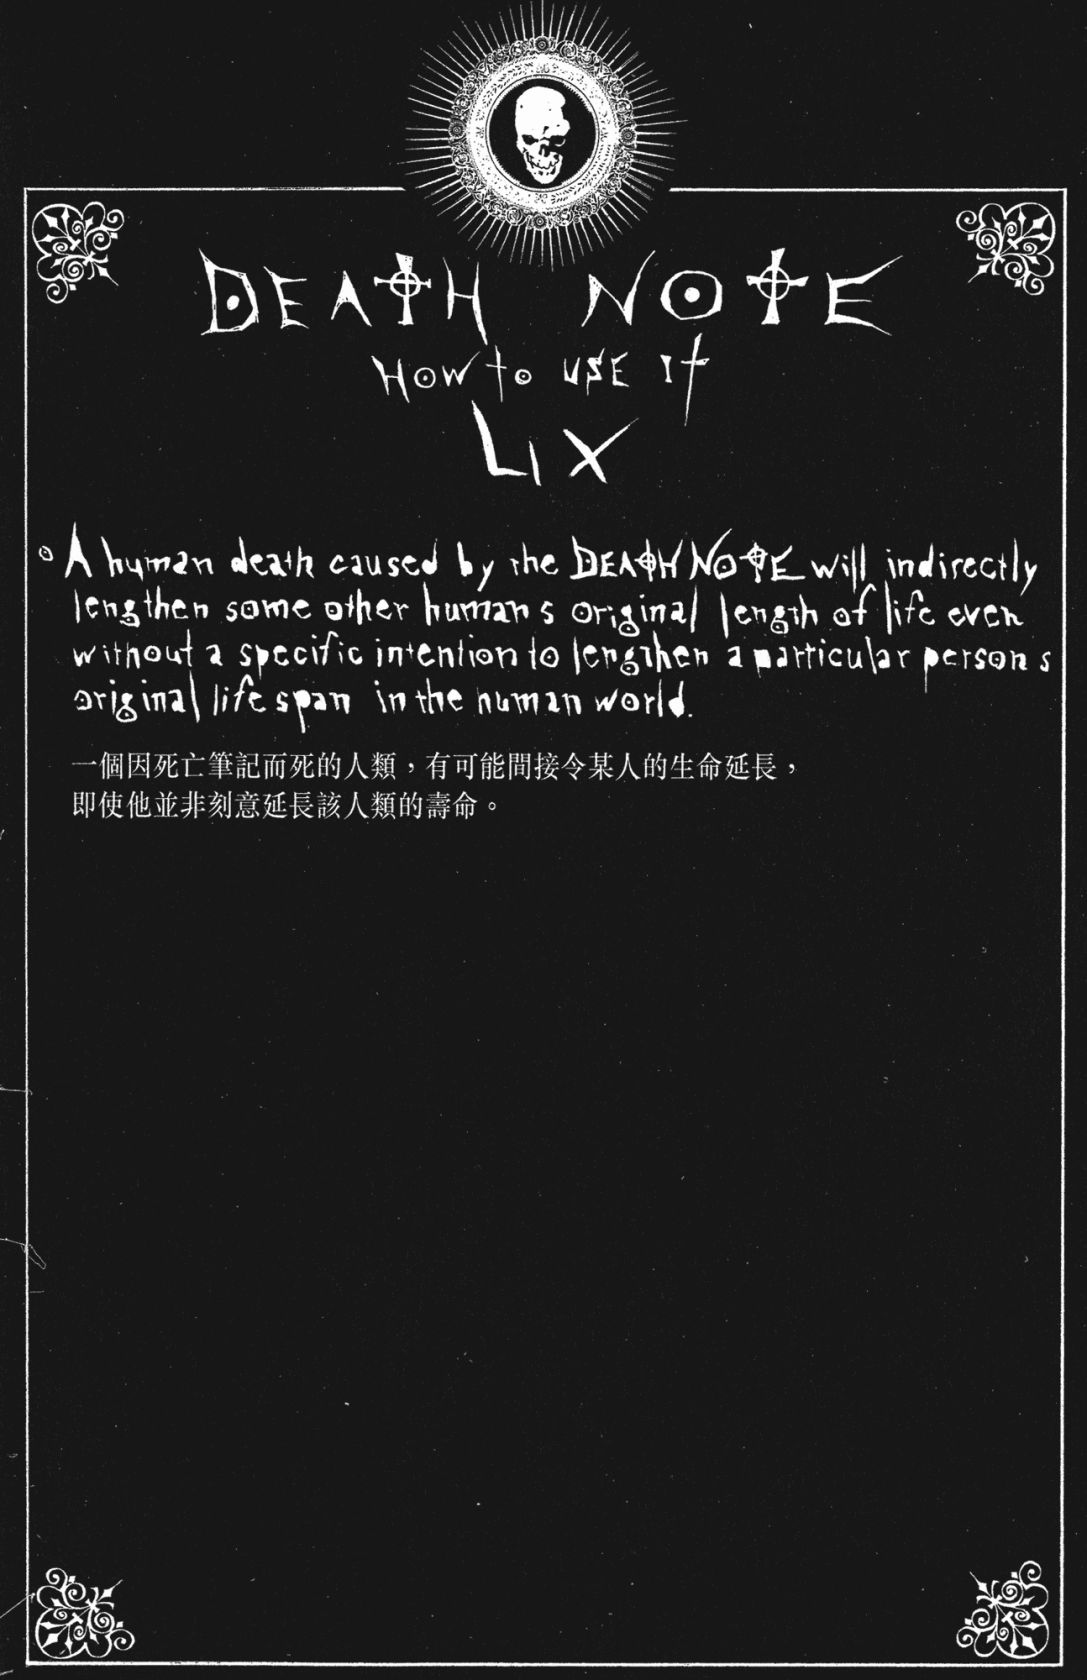 DEATH NOTE
HOW to USE It
LIX
A human death caused by the DEATH NOTE will indirectly
lengthen some other human s original length of life even
without a specific intention to lengthen a particular person s
original life span in the human world.
一個因死亡筆記而死的人類，有可能間接令某人的生命延長，
即使他並非刻意延長該人類的壽命。